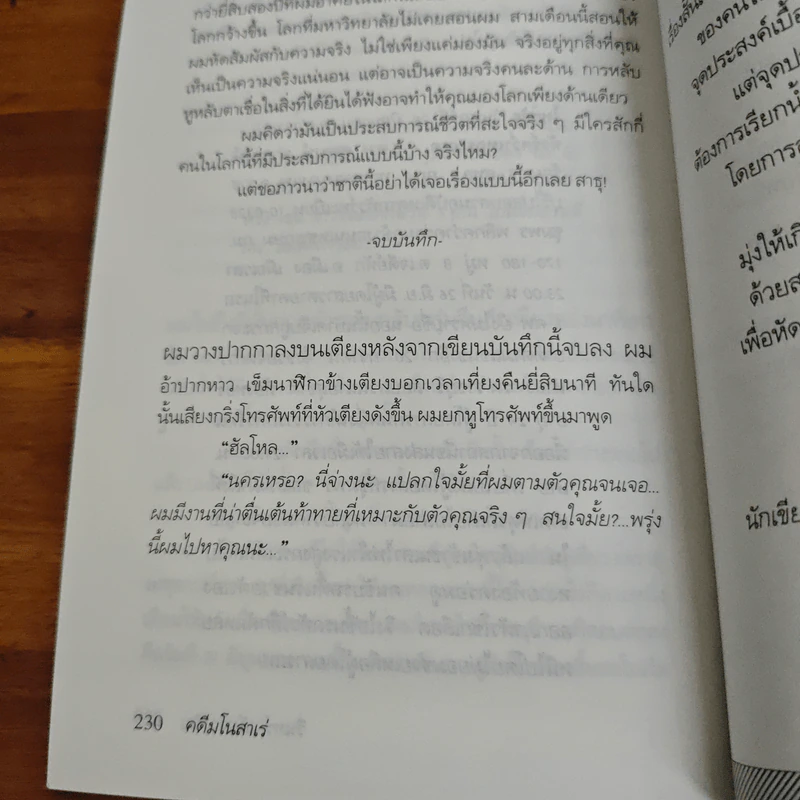 กว่ายี่สิบสองปีที่ผมอาศัยในโลก
โลกกว้างขึ้น โลกที่มหาวิทยาลัยไม่เคยสอนผม สามเดือนนี้สอนให้
ผมหัดสัมผัสกับความจริง ไม่ใช่เพียงแค่มองมัน จริงอยู่ทุกสิ่งที่คุณ
เห็นเป็นความจริงแน่นอน แต่อาจเป็นความจริงคนละด้าน การหลับ
หูหลับตาเชื่อในสิ่งที่ได้ยินได้ฟังอาจทำให้คุณมองโลกเพียงด้านเดียว
ผมคิดว่ามันเป็นประสบการณ์ชีวิตที่สะใจจริง ๆ มีใครสักกี่
คนในโลกนี้ที่มีประสบการณ์แบบนี้บ้าง จริงไหม?
แต่ขอภาวนาว่าชาตินี้อย่าได้เจอเรื่องแบบนี้อีกเลย สาธุ!
-จบบันทึก-
ผมวางปากกาลงบนเตียงหลังจากเขียนบันทึกนี้จบลง ผม
อ้าปากหาว เข็มนาฬิกาข้างเตียงบอกเวลาเที่ยงคืนยี่สิบนาที ทันใด
นั้นเสียงกริ่งโทรศัพท์ที่หัวเตียงดังขึ้น ผมยกหูโทรศัพท์ขึ้นมาพูด
“ฮัลโหล...”
“นครเหรอ? นี่จ่างนะ แปลกใจมั้ยที่ผมตามตัวคุณจนเจอ...
ผมมีงานที่น่าตื่นเต้นท้าทายที่เหมาะกับตัวคุณจริง ๆ สนใจมั้ย?...พรุ่ง
นี้ผมไปหาคุณนะ...”
230 คดีมโนสาเร่
ของคน
จุดประสงค์เบื้
แต่จุดป
ต้องการเรียกน้ำ
โดยการ
มุ่งให้เกิ
ด้วยส
เพื่อหัด
นักเขีย